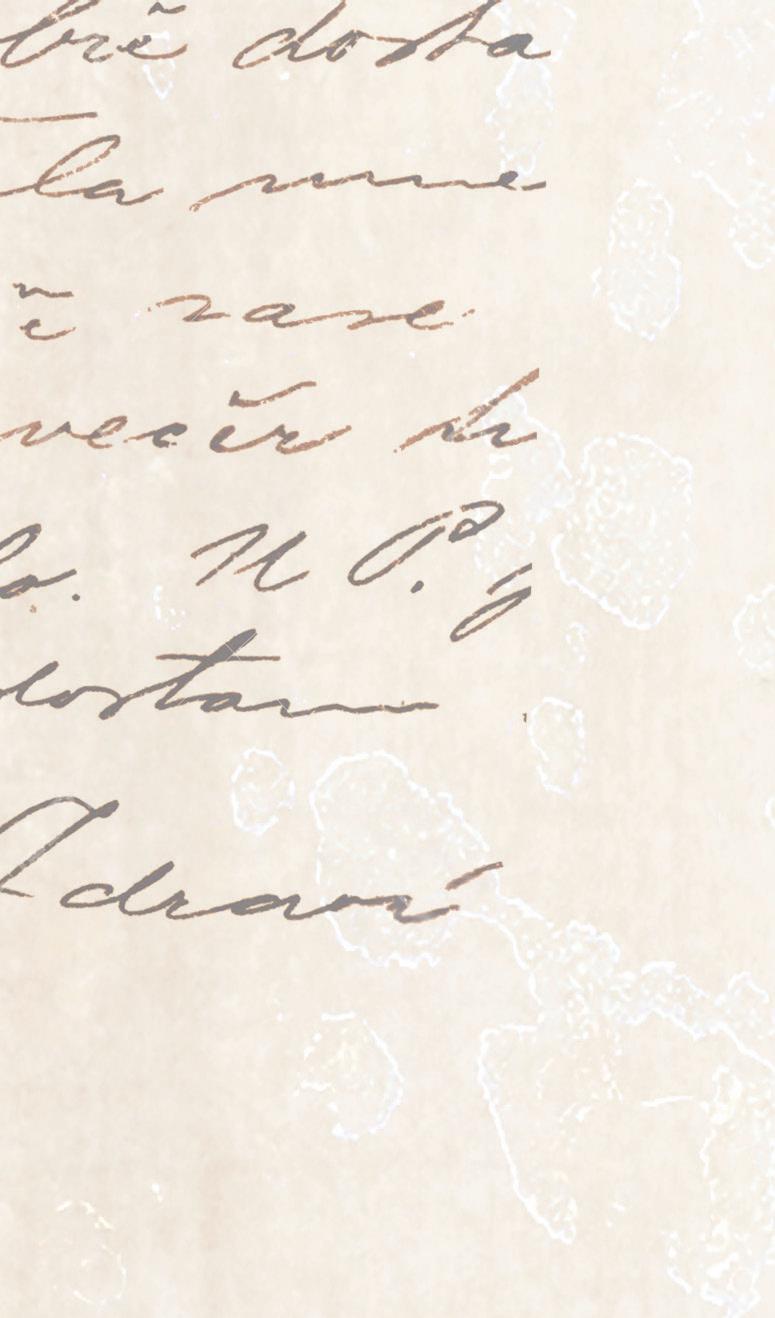 brě dosta
la mne
ě zase
večer k
lo. N P. y
dostan
Zdraví